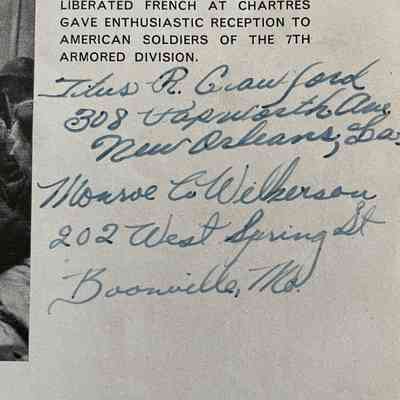 LIBERATED FRENCH AT CHARTRES
GAVE ENTHUSIASTIC RECEPTION TO
AMERICAN SOLDIERS OF THE 7TH
ARMORED DIVISION.
Titus R. Crawford
308 Papworth Ave
New Orleans, La.
Monroe C. Wilkerson
202 West Spring St
Boonville, Mo.